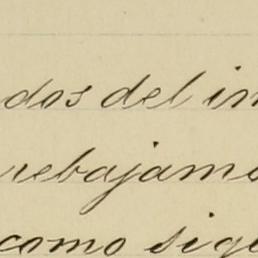 dos del im
rebajamo
como sigu